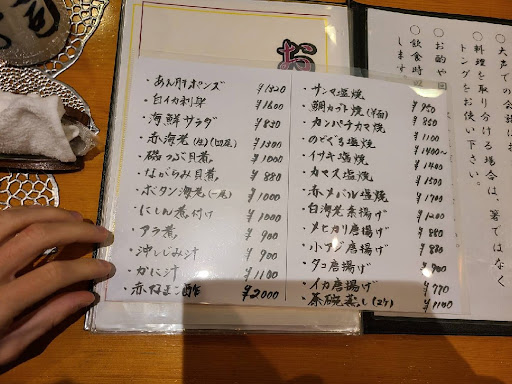 ・あん肝ポンズ ¥1320
・白イカ刺身 ¥1600
・海鮮サラダ ¥880
・赤海老(生)(四尾) ¥1300
・磯つぶ貝煮 ¥1000
・ながらみ貝煮 ¥880
・ボタン海老(一尾) ¥1000
・にしん煮付け ¥1000
・アラ煮 ¥900
・沖しじみ汁 ¥900
・かに汁 ¥1100
・赤なまこ酢 ¥2000
・サンマ塩焼
・鯛カブト焼(半面) ¥950
・カンパチカマ焼 ¥850
・のどぐろ塩焼 ¥1100
・イサキ塩焼 ¥1400〜
・カマス塩焼 ¥1400
・赤メバル塩焼 ¥1500
・白海老素揚げ ¥1700
・メヒカリ唐揚げ ¥1200
・小フグ唐揚げ ¥880
・タコ唐揚げ ¥880
・イカ唐揚げ ¥900
・茶碗蒸し(2ケ) ¥770
¥1100
お
〇大声での会話は
〇料理を取り分ける場合は、箸ではなく
トングをお使い下さい。
〇お酌や
〇飲食時
します